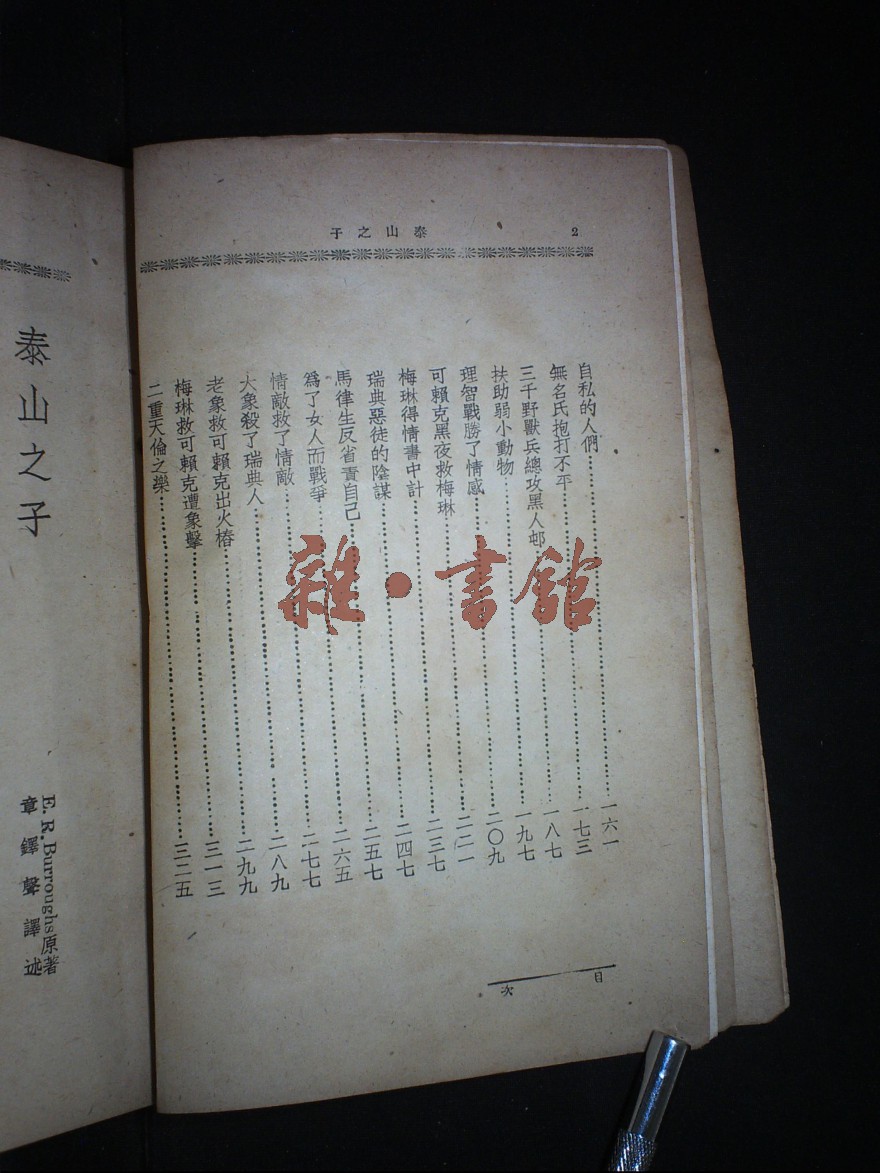 2
泰山之子
自私的人們……一六一
無名氏抱打不平……一七三
三千野獸兵總攻黑人邨……一八七
扶助弱小動物……一九七
理智戰勝了情感……二〇九
可賴克黑夜救梅琳……二二一
梅琳得情書中計……二三七
瑞典惡徒的陰謀……二四七
馬律生反省責自己……二五七
爲了女人而戰爭……二六五
情敵救了情敵……二七七
大象殺了瑞典人……二八九
老象救可賴克出火樁……二九九
梅琳救可賴克遭象擊……三一三
二重天倫之樂……三二五
目次
雜·書館
泰山之子
E. R. Burroughs原著
章鐸聲譯述